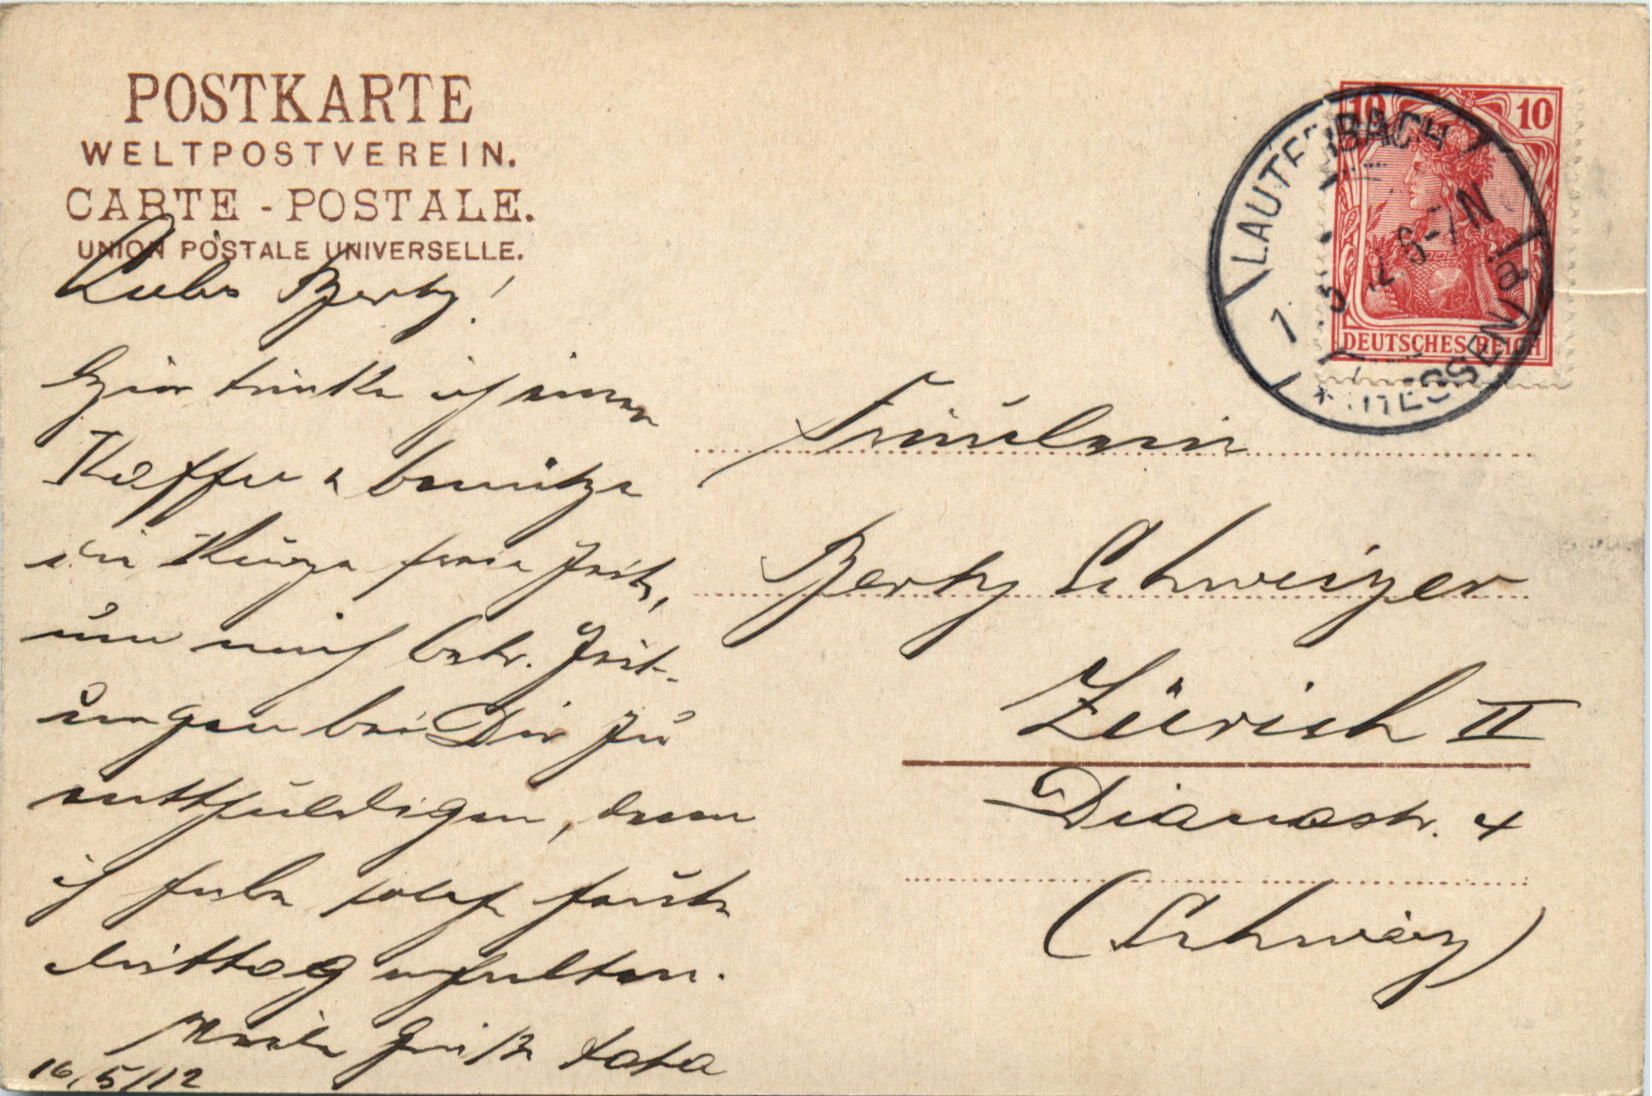 POSTKARTE
WELTPOSTVEREIN.
CARTE - POSTALE.
UNION POSTALE UNIVERSELLE.
10 10
DEUTSCHES REICH
LAUTERBACH
(HESSEN)
Liebe Berty!
Hier trinke ich einen
Kaffee & benütze
die kurze freie Zeit,
um mich betr. Zeit-
ungen bei Dir zu
entschuldigen, denn
ich habe solche heute
Mittag erhalten.
Viele Grüße
16/5/12
Fräulein
Berty Schweizer
Zürich II
Dianastr. 4
(Schweiz)